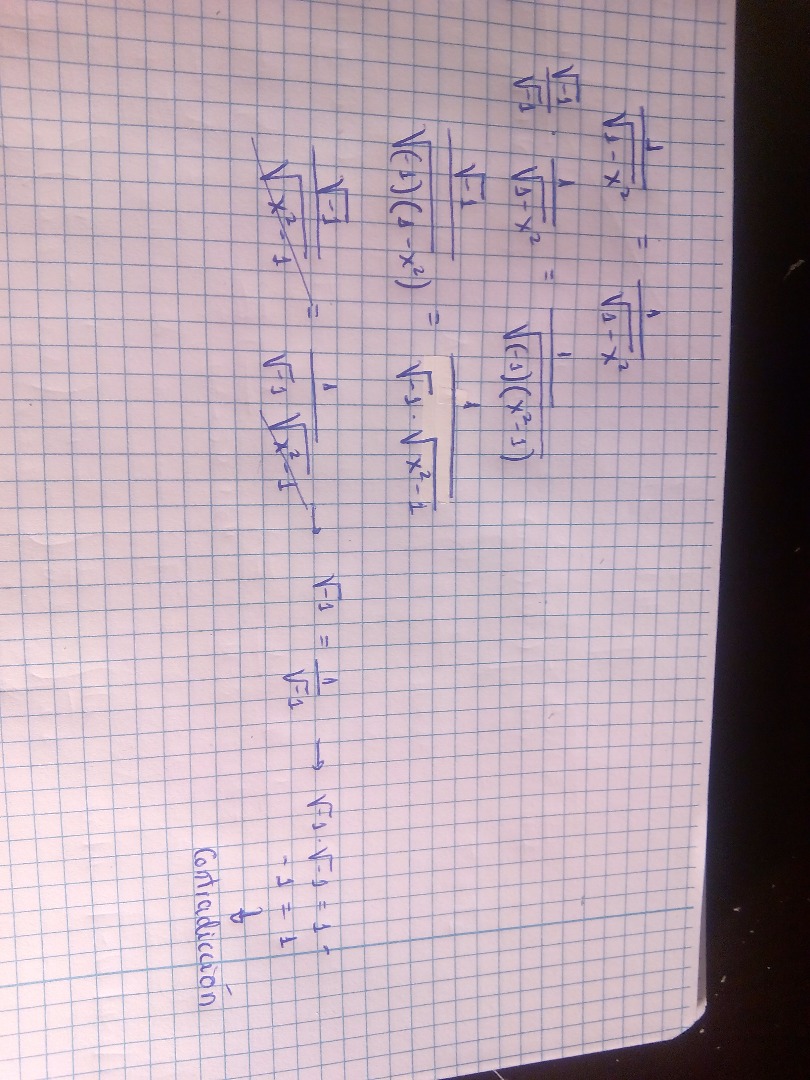 1/√(1-x²) = 1/√(1-x²)
√-1/√-1 · 1/√(1-x²) = 1/√((-1)(x²-1))
√-1/√((-1)(1-x²)) = 1/(√-1 · √(x²-1))
√-1/√(x²-1) = 1/(√-1 √(x²-1)) → √-1 = 1/√-1 → √-1 · √-1 = 1
-1 = 1
↓
Contradicción